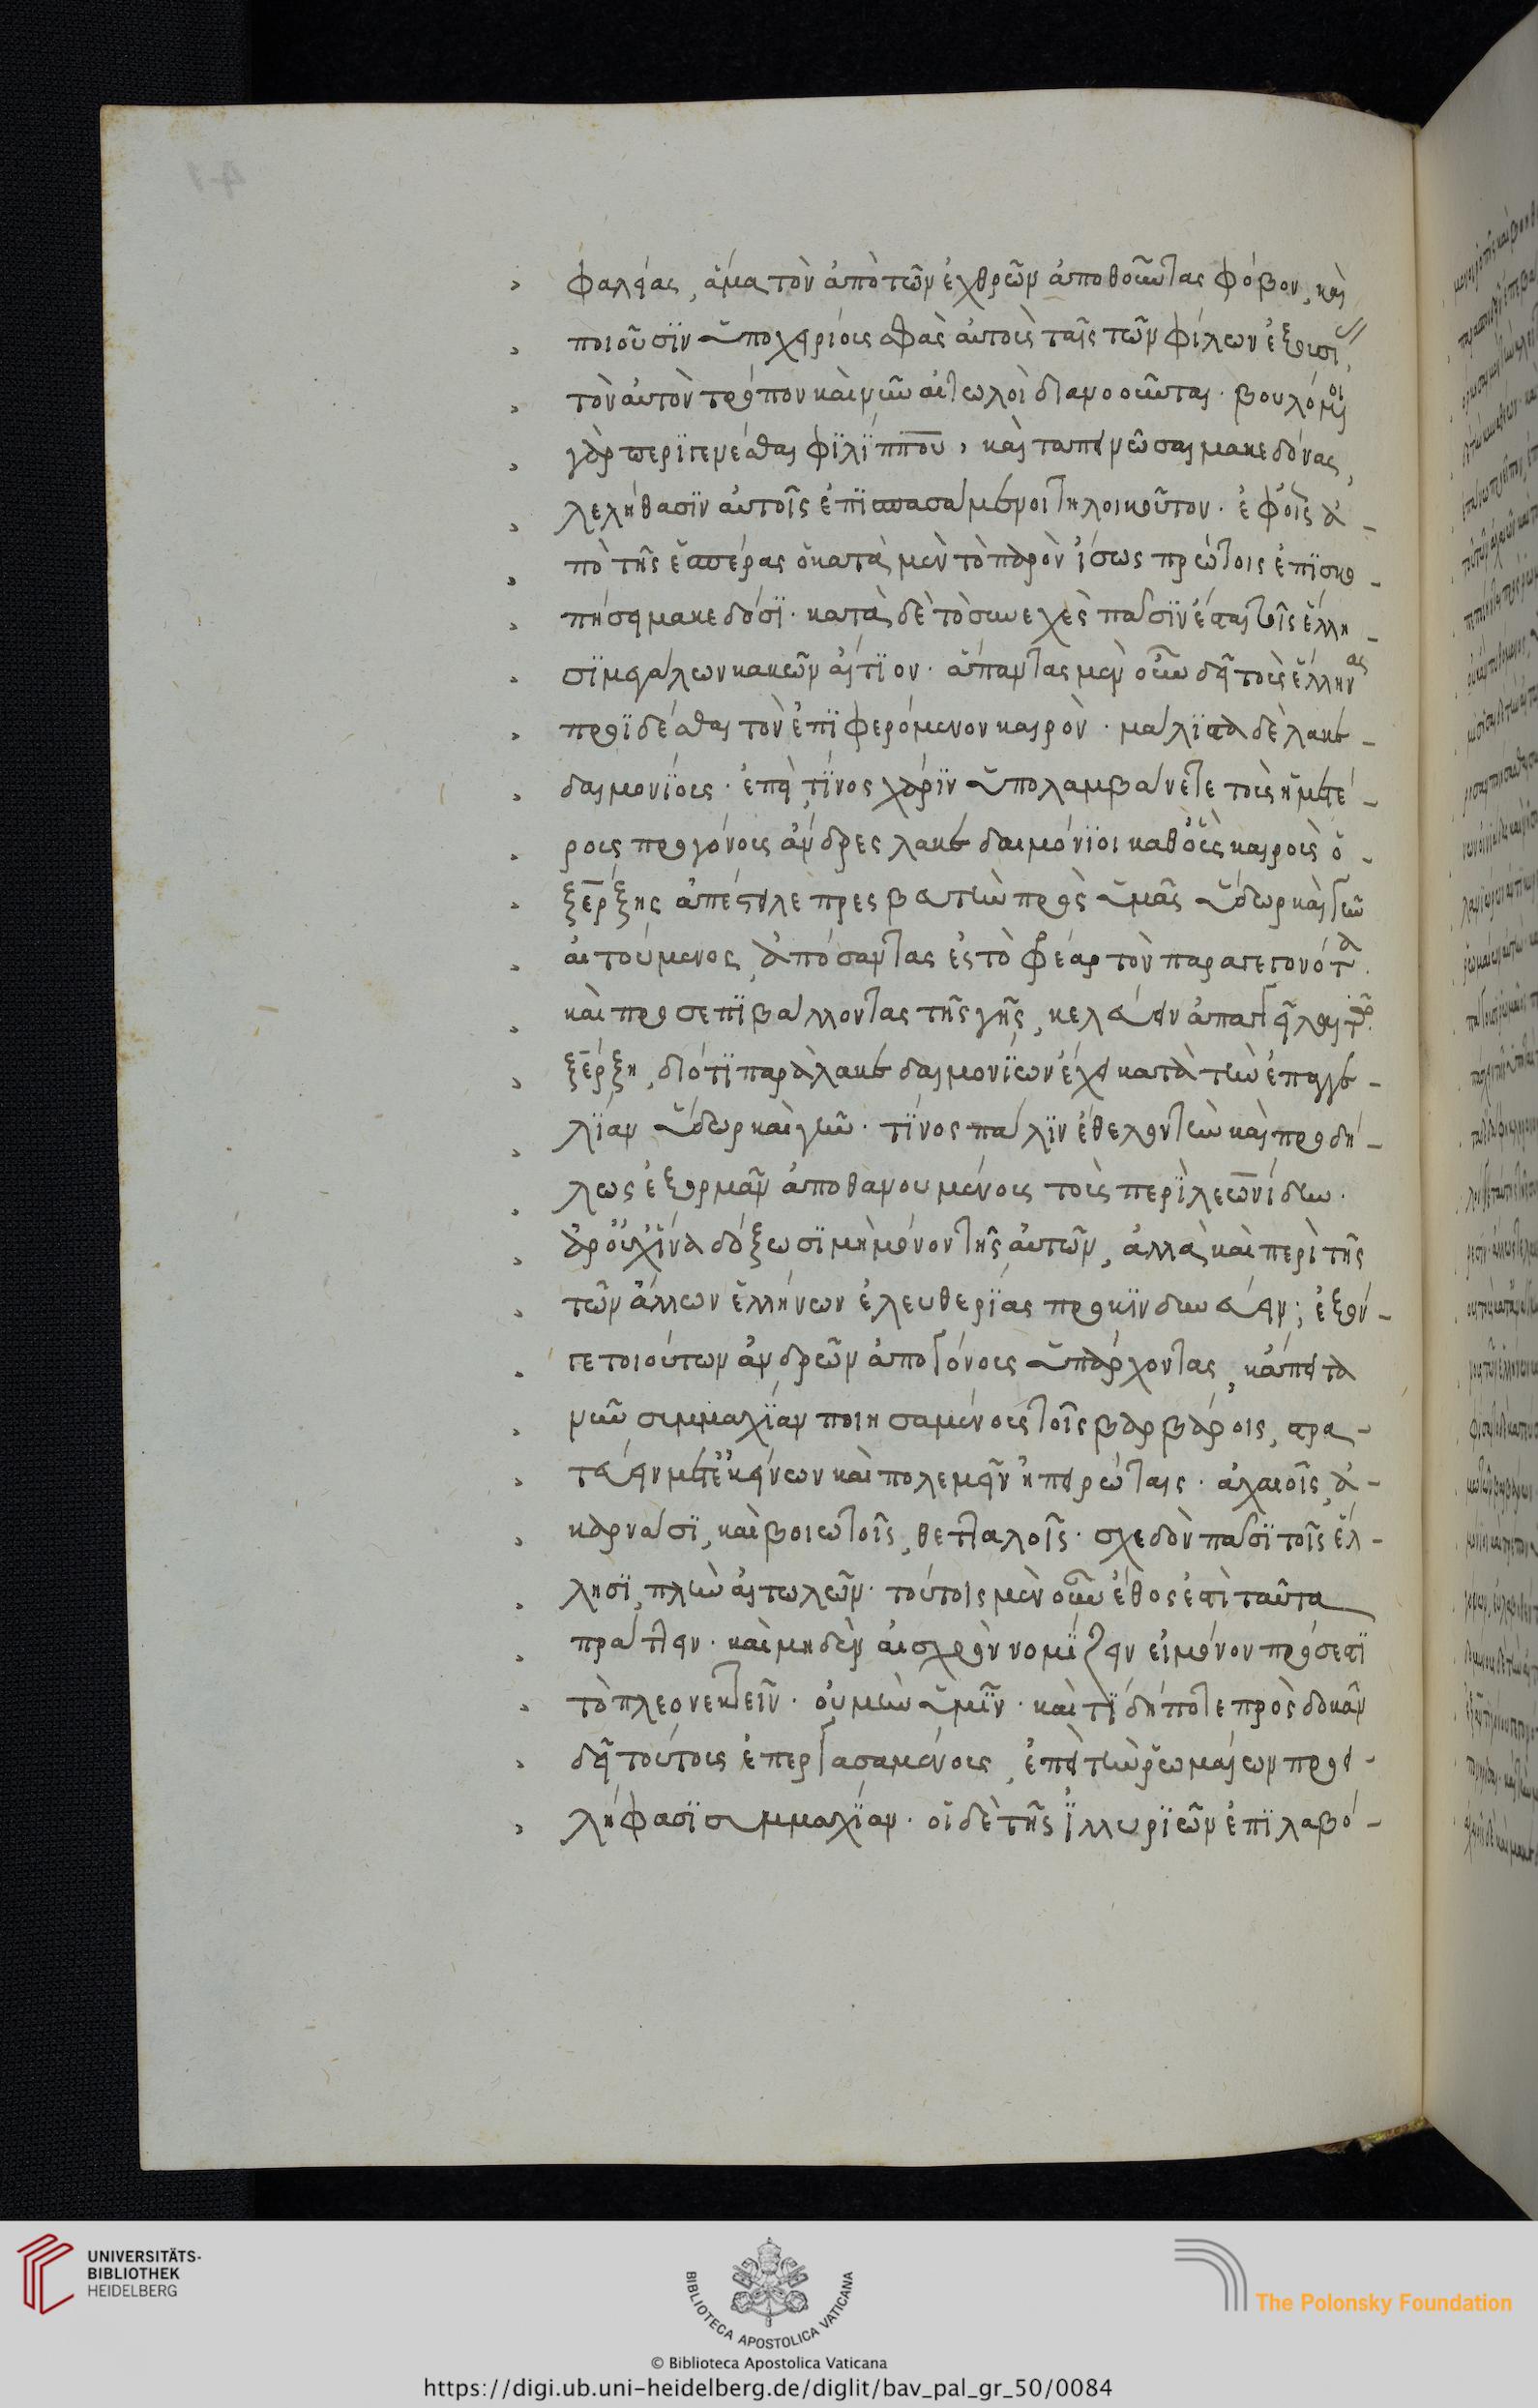 φαλείας, ἅμα τὸν ἀπὸ τῶν ἐχθρῶν ἀποθοῦνται φόβον, καὶ
ποιοῦσϊν ὑποχειρίους σφᾶς αὐτοὺς ταῖς τῶν φίλων ἐξουσί
τὸν αὐτὸν τρόπον καὶ νῦν αἰτωλοὶ διανοοῦνται. βουλόμενοι
γὰρ περϊγενέσθαι φϊλίππου, καὶ ταπεινῶσαι μακεδόνας,
λελήθασϊν αὑτοῖς ἐπϊσπασάμενοι τηλικοῦτον. ἐφ' οἷς ἀ-
πὸ τῆς ἑσπέρας ὃ κατὰ μὲν τὸ παρὸν ἴσως πρώτοις ἐπϊσκο-
πήσει μακεδόσϊ. κατὰ δὲ τὸ συνεχὲς πᾶσϊν ἔσται τοῖς ἕλλη-
σϊ μεγάλων κακῶν αἴτϊον. ἅπαντας μὲν οὖν δεῖ τοὺς ἕλληνας
προϊδέσθαι τὸν ἐπϊφερόμενον καιρὸν. μάλϊστα δὲ λακε-
δαιμονϊους. ἐπεὶ τϊνος χάρϊν ὑπολαμβάνετε τοὺς ἡμετέ-
ρους προγόνους ἄνδρες λακεδαιμόνϊοι καθ' οὓς καιροὺς ὁ
ξέρξης ἀπέστειλε πρεσβευτὴν πρὸς ὑμᾶς ὕδωρ καὶ γῆν
αἰτούμενος, ἀπώσαντας ἐς τὸ φρέαρ τὸν παραγεγονότα.
καὶ προσεπϊβάλλοντας τῆς γῆς, κελεύειν ἀπαγγεῖλαι τῷ
ξέρξη, διότϊ παρὰ λακεδαιμονϊων ἔχει κατὰ τὴν ἐπαγγε-
λϊαν ὕδωρ καὶ γῆν. τϊνος πάλϊν ἐθελοντὴν καὶ προδή-
λως ἐξορμᾶν ἀποθανουμένους τοὺς περὶ λεωνίδην.
ἆρ' οὐχ' ἵνα δόξωσϊ μὴ μόνον τῆς αὑτῶν, ἀλλὰ καὶ περὶ τῆς
τῶν ἄλλων ἑλλήνων ἐλευθερϊας προκϊνδυνεύειν; ἐξόν-
γε τοιούτων ἀνδρῶν ἀπογόνους ὑπάρχοντας, κἄπειτα
νῦν συμμαχϊαν ποιησαμένους τοῖς βαρβάροις, στρα-
τεύειν μετ' ἐκείνων καὶ πολεμεῖν ἠπειρώταις. ἀχαιοῖς, ἀ-
καρνᾶσϊ, καὶ βοιωτοῖς, θετταλοῖς. σχεδὸν πᾶσϊ τοῖς ἕλ-
λησϊ, πλὴν αἰτωλῶν. τούτοις μὲν οὖν ἔθος ἐστὶ ταῦτα
πράττειν. καὶ μηδὲν αἰσχρὸν νομϊζειν εἰ μόνον πρόσεστϊ
τὸ πλεονεκτεῖν. οὐ μὴν ὑμῖν. καὶ τϊ δήποτε προσδοκᾶν
δεῖ τούτους ἀπεργασαμένους, ἐπεὶ τὴν ῥωμαίων προσει-
λήφασϊ συμμαχϊαν. οἱ δὲ τῆς ϊλλυρϊῶν ἐπϊλαβό-
UNIVERSITÄTS-
BIBLIOTHEK
HEIDELBERG
BIBLIOTECA APOSTOLICA VATICANA
The Polonsky Foundation
© Biblioteca Apostolica Vaticana
https://digi.ub.uni-heidelberg.de/diglit/bav_pal_gr_50/0084